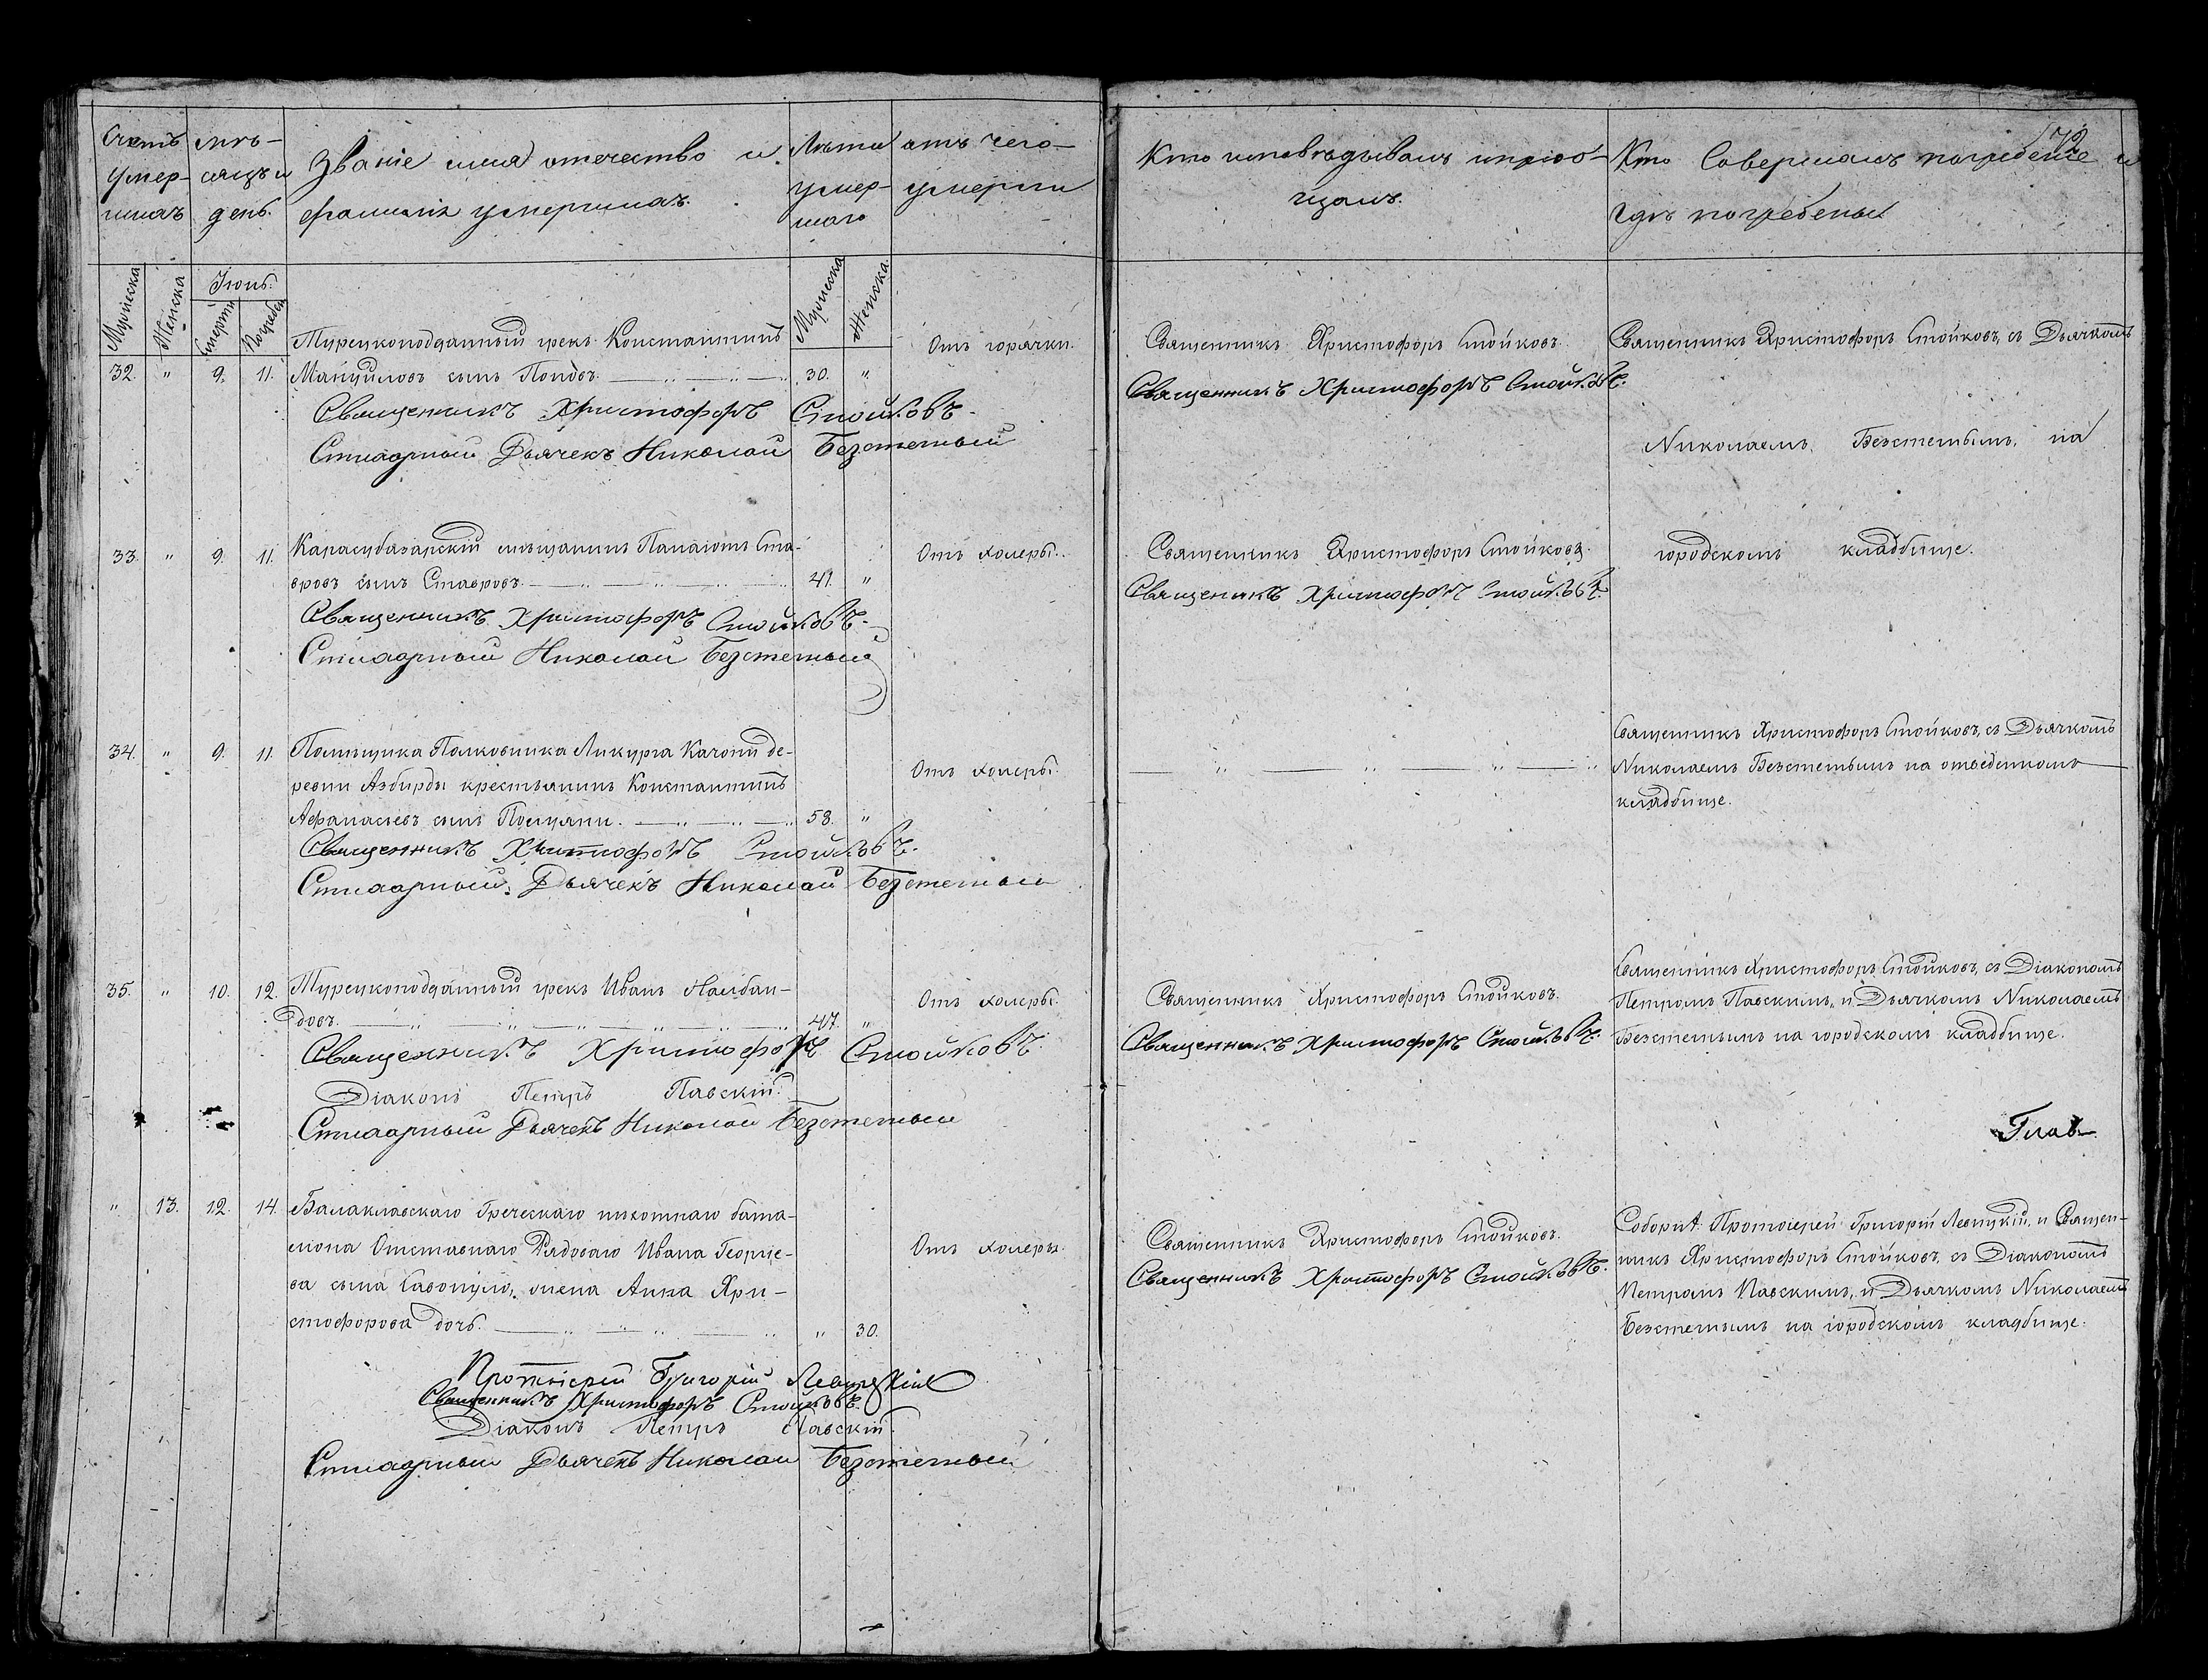 Счетъ умер-шихъ
мѣ-сяцъ и день.
Званіе имя отечество и
фамилія умершихъ.
Лѣта умер-шаго
отъ чего умерли
Кто исповѣдывалъ и пріоб-
щалъ.
72
Кто Совершалъ погребеніе и
гдѣ погребены
Мужеска
Женска
Іюнь.
Смерти
Погребен
Мужеска
Женска.
Турецкоподданный грекъ Константинъ
Отъ горячки.
Священникъ Христофоръ Стойковъ.
Священникъ Христофоръ Стойковъ, съ Дьячкомъ
32. " 9. 11. Мануиловъ сынъ Поповъ. 30. "
Священникъ Христофоръ Стойковъ.
Священникъ Христофоръ Стойковъ.
Стихарный Дьячекъ Николай Безстетный
Николаемъ Безстетымъ, на
33. " 9. 11. Карасубазарскій мѣщанинъ Панаіотъ Ста-
Отъ холеры.
Священникъ Христофоръ Стойковъ.
городскомъ кладбище.
вровъ сынъ Ставровъ. 41. "
Священникъ Христофоръ Стойковъ.
Священникъ Христофоръ Стойковъ.
Стихарный Николай Безстетный
34. " 9. 11. Помѣщика Полковника Ликурга Качони де-
Отъ холеры.
Священникъ Христофоръ Стойковъ, съ Дьячкомъ
ревни Азбирды крестьянинъ Константинъ
Николаемъ Безстетымъ на отведенномъ
Афанасьевъ сынъ 58. "
кладбище.
Священникъ Христофоръ Стойковъ.
Стихарный Дьячекъ Николай Безстетный
35. " 10. 12. Турецкоподданный грекъ Иванъ Налбан-
Отъ холеры.
Священникъ Христофоръ Стойковъ.
Священникъ Христофоръ Стойковъ, съ Діакономъ
довъ. 47. "
Петромъ Павскимъ, и Дьячкомъ Николаемъ
Священникъ Христофоръ Стойковъ
Священникъ Христофоръ Стойковъ.
Безстетымъ на городскомъ кладбище.
Діаконъ Петръ Павскій.
Стихарный Дьячекъ Николай Безстетный
Глав-
" 13. 12. 14. Балаклавскаго Греческаго пѣхотнаго бата-
ліона Отставнаго Рядоваго Ивана Георгіе-
ва сына Савопуло, жена Анна Хри-
стофорова дочь. " 30.
Отъ холеры.
Священникъ Христофоръ Стойковъ.
Священникъ Христофоръ Стойковъ.
Протоіерей Григорій Левицкій, и Священ-
никъ Христофоръ Стойковъ, съ Діакономъ
Петромъ Павскимъ, и Дьячкомъ Николаемъ
Безстетымъ на городскомъ кладбище.
Протоіерей Григорій Левицкій
Священникъ Христофоръ Стойковъ.
Діаконъ Петръ Павскій.
Стихарный Дьячекъ Николай Безстетный